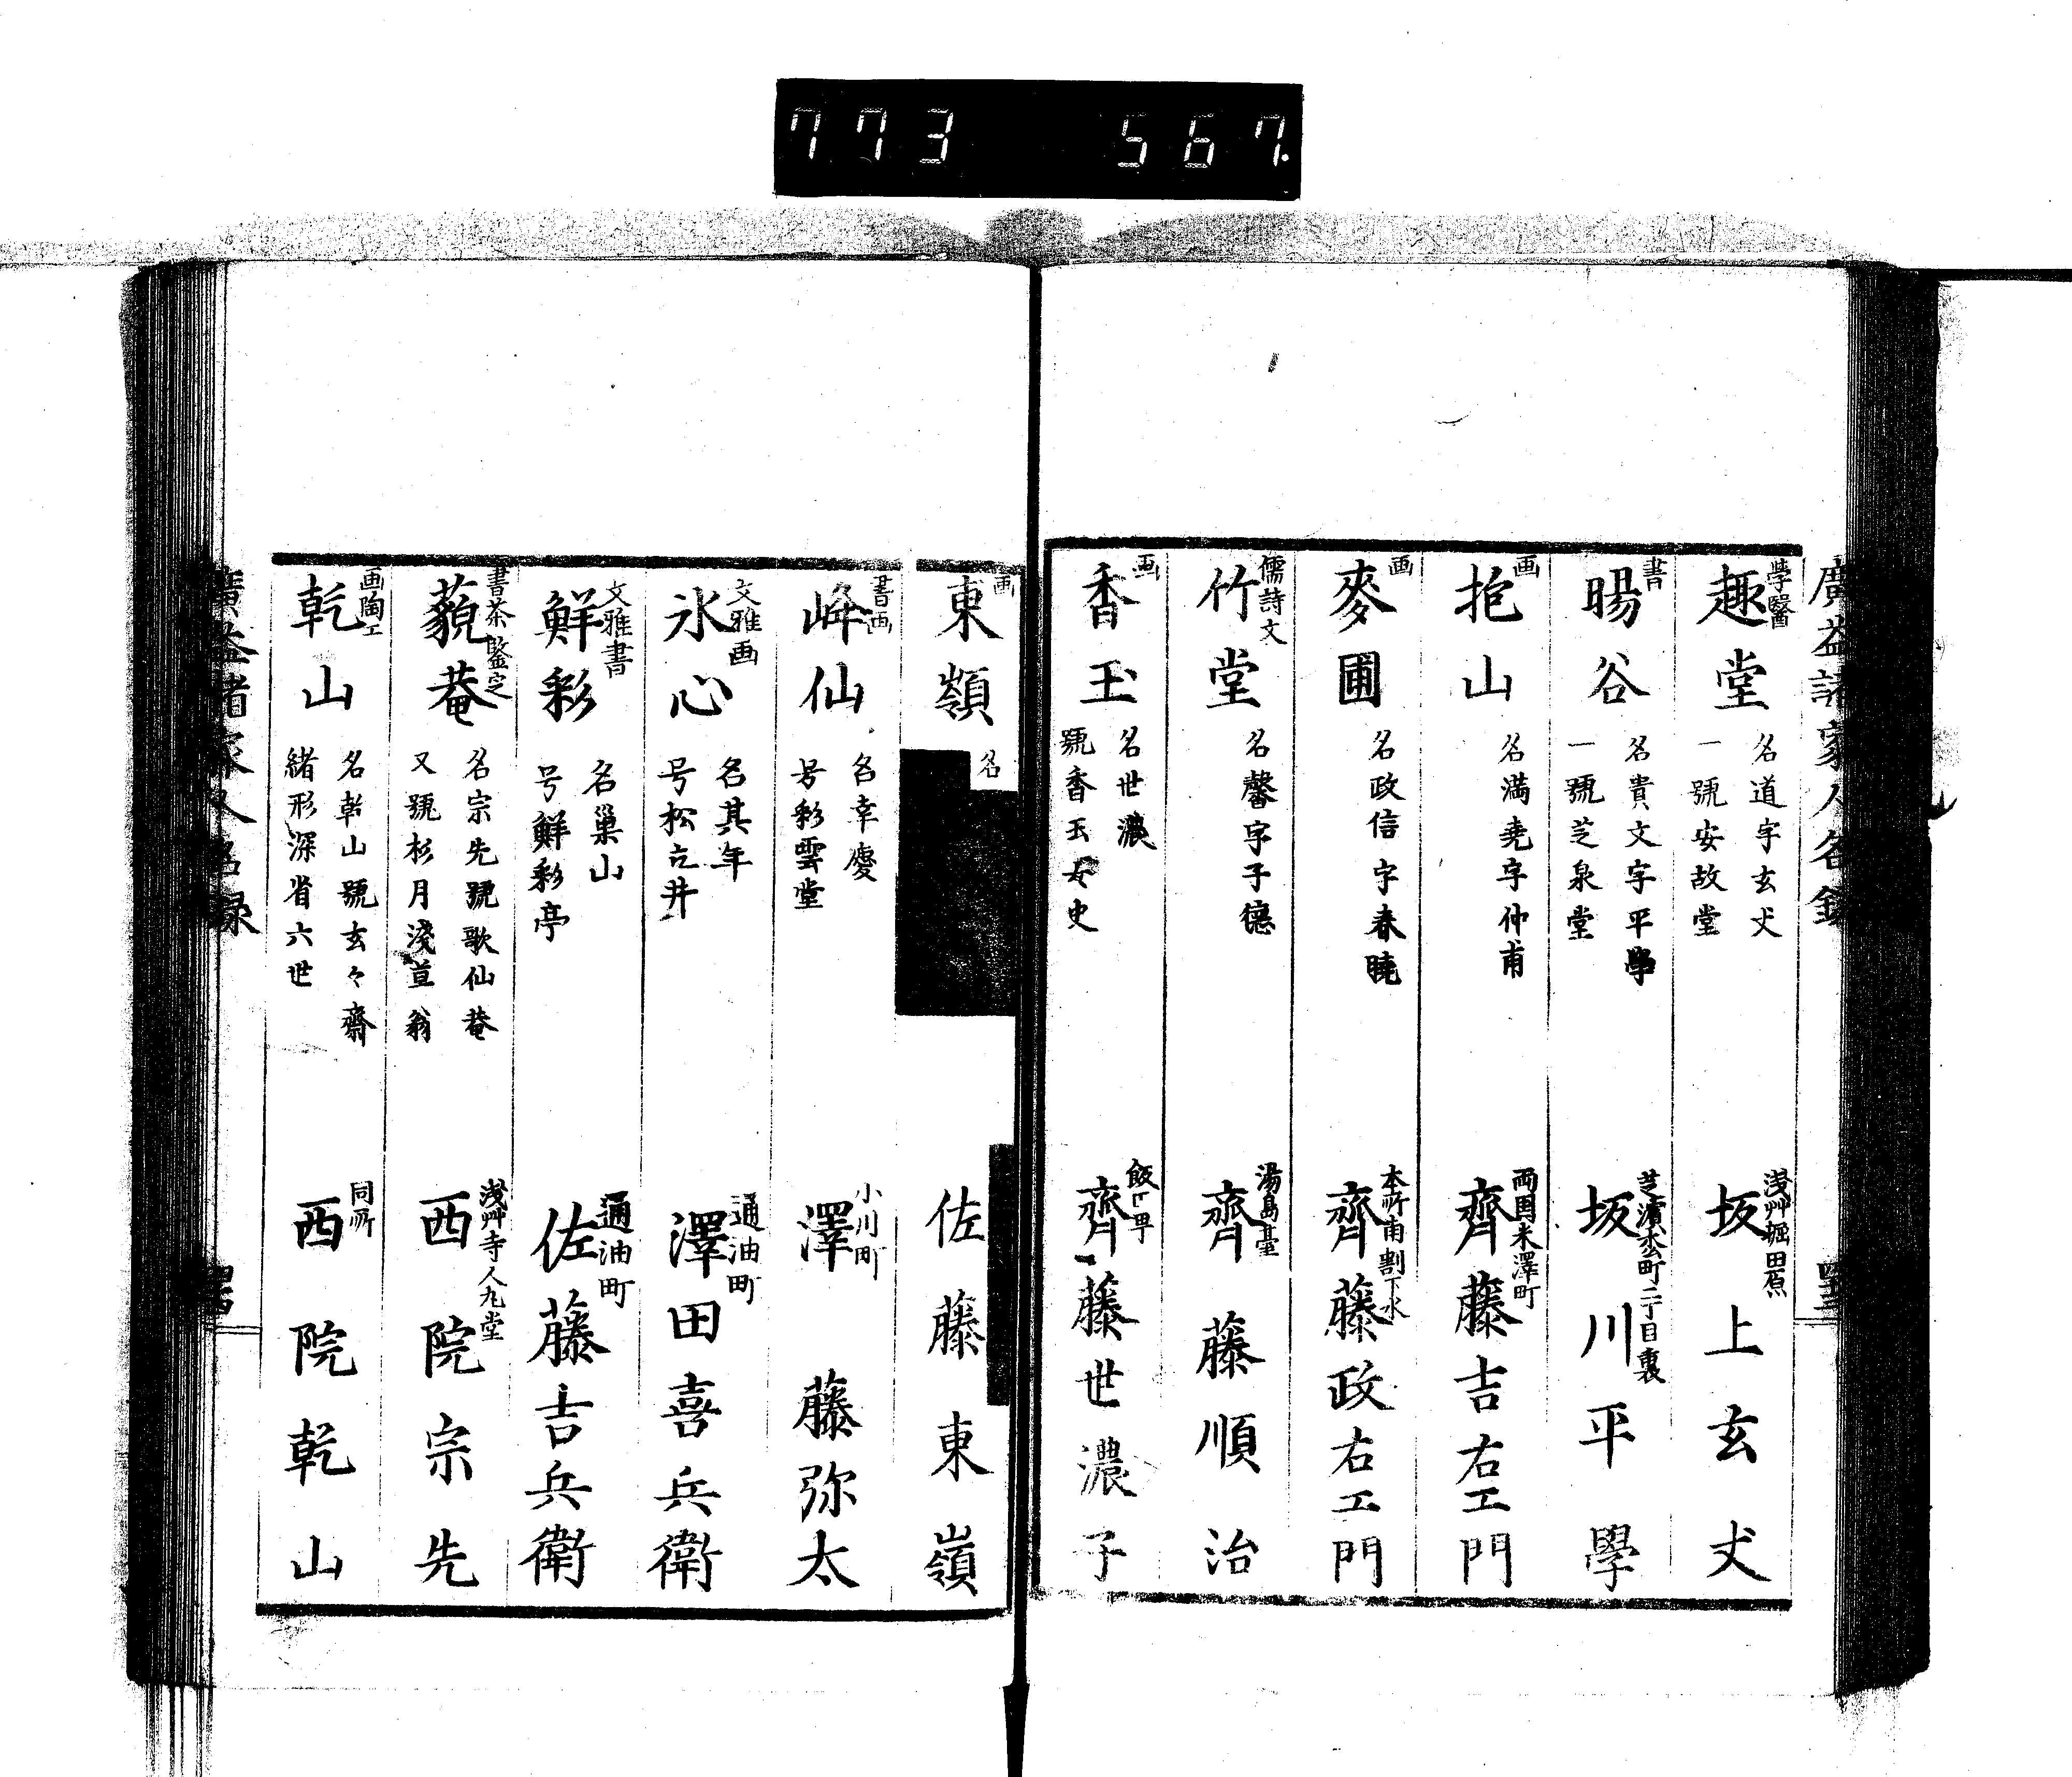 773 567.
廣益諸家人名録
學醫
趣堂
名道字玄丈
一號安故堂
浅艸堀田原
坂上玄丈
書
暘谷
名貴文字平學
一號芝泉堂
芝濱松町二丁目裏
坂川平學
画
抱山
名満堯字仲甫
両国米澤町
齊藤吉右エ門
画
麥圃
名政信字春暁
本所南割下水
齊藤政右エ門
儒詩文
竹堂
名馨字子德
湯島臺
齊藤順治
画
香玉
名世濃
號香玉女史
飯田町
齊藤世濃子
画
東嶺
名
佐藤東嶺
書画
峰仙
名幸慶
号彩雲堂
小川町
澤藤弥太
文雅画
氷心
名其年
号松立井
通油町
澤田喜兵衛
文雅書
鮮彩
名巢山
号鮮彩亭
通油町
佐藤吉兵衛
書茶鑒定
藐菴
名宗先號歌仙菴
又號杉月淺草翁
浅艸寺人丸堂
西院宗先
画陶工
乾山
名乾山號玄々齋
緒形深省六世
同所
西院乾山
廣益諸家人名録